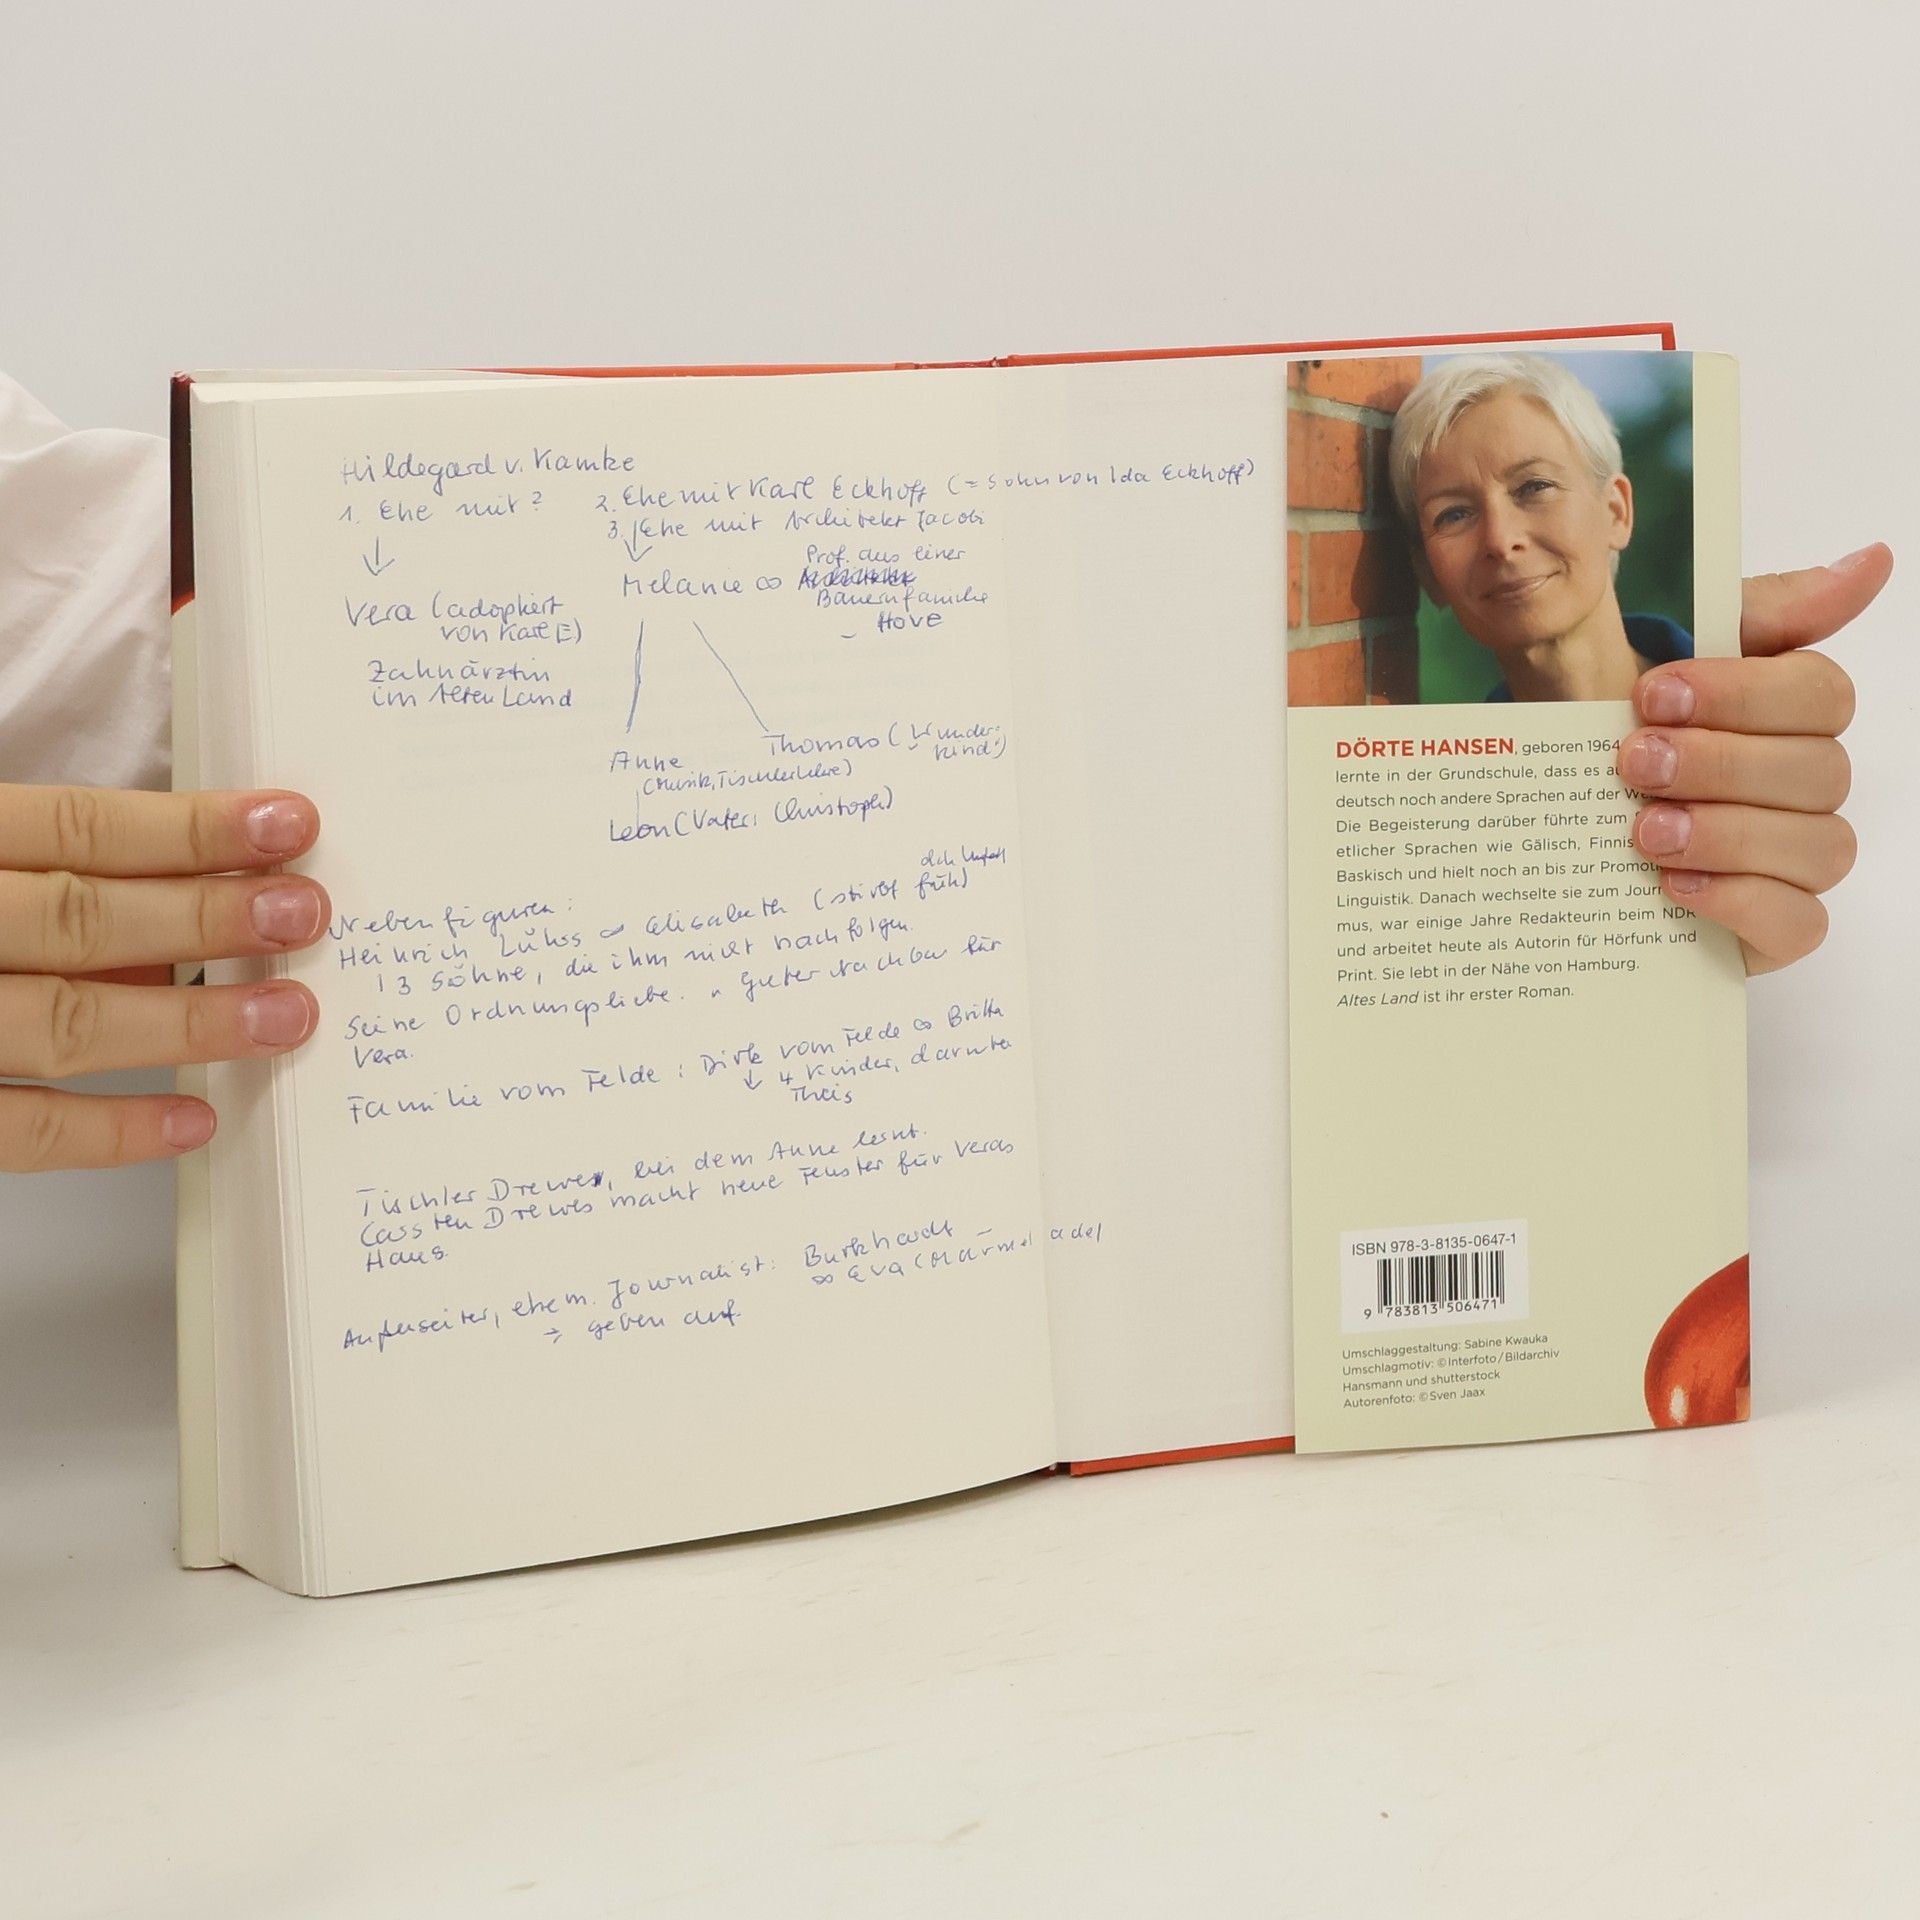 Hildegard v. Kamke
1. Ehe mit?
2. Ehe mit Karl Eckhoff (= Sohn von Ida Eckhoff)
3. Ehe mit Architekt Jacobi
Vera (adoptiert
von Karl E)
Zahnärztin
im Alten Land
Melanie ∞ Prof. aus einer
Bauernfamilie
- Hove
Anne
(Musik, Tischlerlehre)
Thomas (Wunder-
kind)
Leon (Vater: Christoph)
Nebenfiguren:
Heinrich Lührs ∞ Elisabeth (stirbt früh)
3 Söhne, die ihm nicht nachfolgen.
Seine Ordnungsliebe. Guter Nachbar für
Vera.
Familie vom Felde: Dirk vom Felde ∞ Britta
↓ 4 Kinder, darunter
Theis
Tischler Drewes, bei dem Anne lernt.
Carsten Drewes macht neue Fenster für Veras
Haus.
Außenseiter, ehem. Journalist: Burkhardt
∞ Eva (Marmelade)
→ geben auf.
DÖRTE HANSEN, geboren 1964
lernte in der Grundschule, dass es
deutsch noch andere Sprachen auf der
Die Begeisterung darüber führte zum
etlicher Sprachen wie Gälisch,
Baskisch und hielt noch an bis zur
Linguistik. Danach wechselte sie zum
mus, war einige Jahre Redakteurin beim NDR
und arbeitet heute als Autorin für Hörfunk und
Print. Sie lebt in der Nähe von Hamburg.
Altes Land ist ihr erster Roman.
ISBN 978-3-8135-0647-1
9 783813 506471
Umschlaggestaltung: Sabine Kwauka
Umschlagmotiv: © Interfoto / Bildarchiv
Hansmann und shutterstock
Autorenfoto: © Sven Jaax